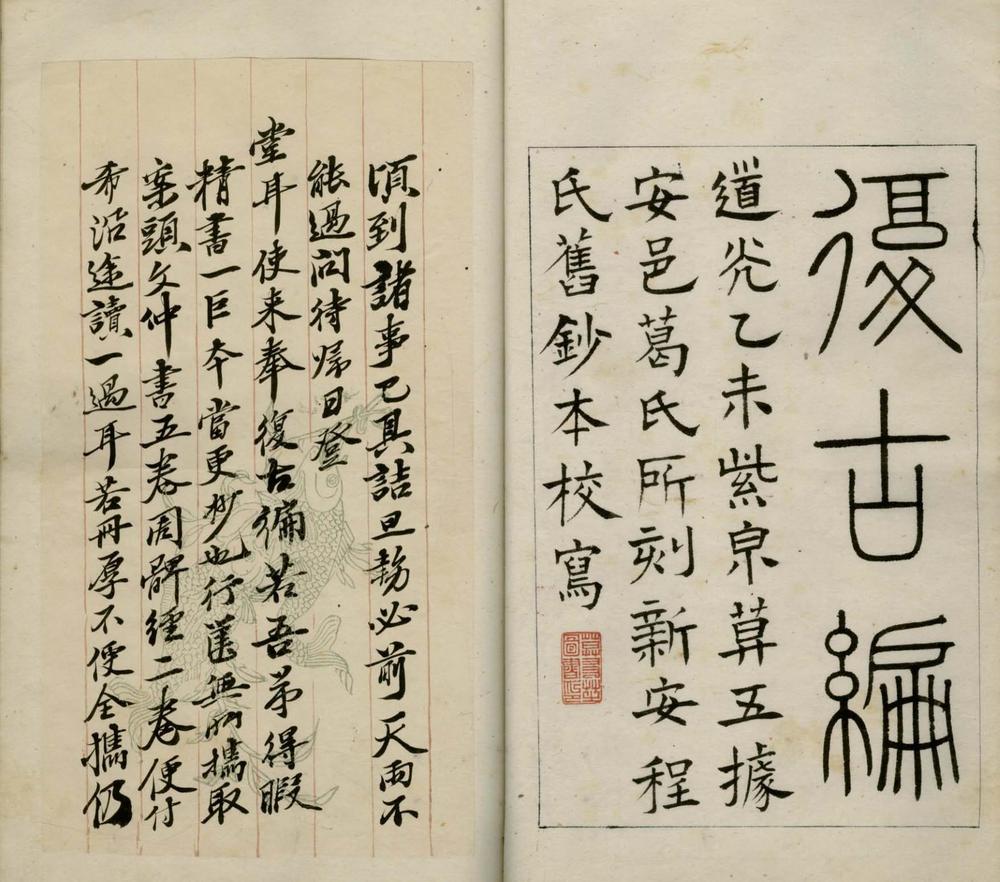 復古編
道光乙未紫泉莫五據
安邑葛氏所刻新安程
氏舊鈔本校寫
頃到諸事已具詰旦趨必前天雨不
能過問待歸日登
堂耳使来奉復古編若吾弟得暇
精書一巨本當更妙也行篋無所攜取
案頭文仲書五卷周髀經二卷便付
希沿途讀一過耳若冊厚不便全攜仍